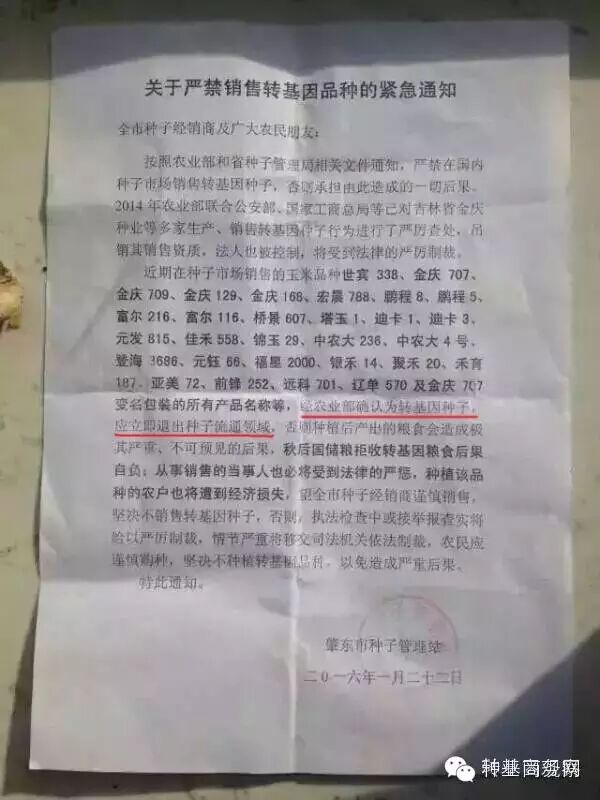 关于严禁销售转基因品种的紧急通知
全市种子经销商及广大农民朋友：
按照农业部和省种子管理局相关文件通知，严禁在国内
种子市场销售转基因种子，否则承担由此造成的一切后果。
2014年农业部联合公安部、国家工商总局等已对吉林省金庆
种业等多家生产、销售转基因种子行为进行了严厉查处，吊
销其销售资质，法人也被控制，将受到法律的严厉制裁。
近期在种子市场销售的玉米品种世宾 338、金庆 707、
金庆 709、金庆 129、金庆 168、宏晨 788、鹏程 8、鹏程 5、
富尔 216、富尔 116、桥景 607、塔玉 1、迪卡 1、迪卡 3、
元发 815、佳禾 558、锦玉 29、中农大 236、中农大 4 号、
登海 3686、元钰 66、福星 2000、银禾 14、聚禾 20、禾育
187、亚美 72、前锋 252、远科 701、辽单 570 及金庆 707
变名包装的所有产品名称等，经农业部确认为转基因种子，
应立即退出种子流通领域，否则种植后产出的粮食会造成极
其严重、不可预见的后果，秋后国储粮拒收转基因粮食后果
自负；从事销售的当事人也必将受到法律的严惩，种植该品
种的农户也将遭到经济损失，望全市种子经销商谨慎销售，
坚决不销售转基因种子，否则，执法检查中或接举报查实将
给以严厉制裁，情节严重将移交司法机关依法制裁，农民应
谨慎购种，坚决不种植转基因品种，以免造成严重后果。
特此通知。
肇东市种子管理站
二〇一六年一月二十二日
商务网